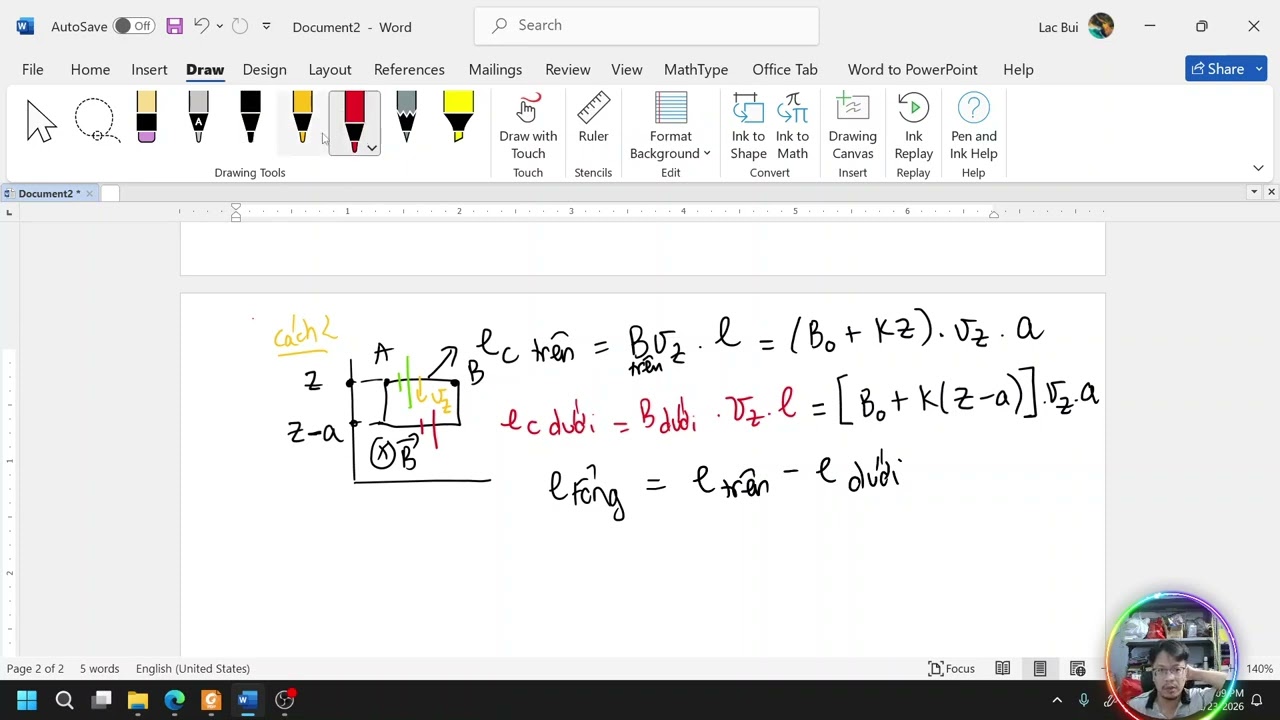 AutoSave Off Document2 - Word Search Lac Bui
File Home Insert Draw Design Layout References Mailings Review View MathType Office Tab Word to PowerPoint Help Share
Draw with Touch
Ruler
Format Background
Ink to Shape
Ink to Math
Drawing Canvas
Ink Replay
Pen and Ink Help
Drawing Tools Touch Stencils Edit Convert Insert Replay Help
Document2 *
1 2 3 4 5 6
cách 2
A
B
z
v_z
z-a
B⃗
e_c trên = B_trên v_z . l = (B₀ + Kz) . v_z . a
e_c dưới = B_dưới . v_z . l = [B₀ + K(z-a)] . v_z . a
e_tổng = e_trên - e_dưới
1
2
Page 2 of 2 5 words English (United States) Focus 140%